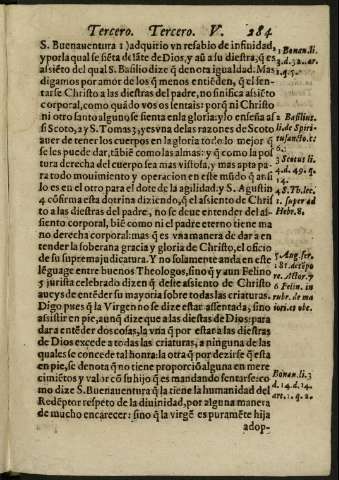 Tercero. Tercero. V. 284
S. Buenauentura 1) adquirio vn resabio de infinidad,
y por la qual se sieta delāte de Dios, y aū a su diestra; q̄ es
assiēto del qual S. Basilio dize q̄ denota igualdad. Mas
digamos por amor de los q̄ menos entiēdē, q̄ el sen-
tarse Christo a las diestras del padre, no sinifica assiēto
corporal, como quādo vos os sentais: porq̄ ni Christi
ni otro santo alguno se sienta en la gloria: y lo enseña assi
si Scoto, 2 y S. Tomas 3, y es vna de las razones de Scoto
auer de tener los cuerpos en la gloria todo lo mejor q̄
se les puede dar, tābiē como las almas: y q̄ como la pos
tura derecha del cuerpo sea mas vistosa, y mas apta pa-
ra todo mouimiento y operacion en este mūdo q̄ ansi
lo es en el otro para el dote de la agilidad. y S. Agustin
4 cōfirma esta dotrina diziendo, q̄ el assiento de Christ
to a las diestras del padre, no se deue entender del as-
siento corporal, biē como ni el padre eterno tiene ma
no derecha corporal: mas q̄ es vna manera de dar a en
tender la soberana gracia y gloria de Christo, el oficio
de su suprema judicatura. Y no solamente anda en este
lēguage entre buenos Theologos, sino q̄ y aun Felino
5 jurista celebrado dizen q̄ deste assiento de Christo
aueys de entēder su mayoria sobre todas las criaturas.
Digo pues q̄ la Virgen no se dize estar assentada, sino
assistir en pie, aunq̄ dize que a las diestras de Dios: pa
dara entēder dos cosas, la vna q̄ por estar a las diestras
de Dios excede a todas las criaturas, a ninguna de las
quales se concede tal honra: la otra q̄ por dezirse q̄ esta
en pie, se denota q̄ no tiene proporciō alguna en mere
cimiētos y valor cō su hijo q̄ es mandando sentarse: co
mo dize S. Buenauentura q̄ la tiene la humanidad del
Redēptor respeto de la diuinidad, por alguna manera
de mucho encarecer: sino q̄ la virgē es puramēte hija
adop-
1 Bonan. li.
3. d. 32. ar.
1. q. 5.
2 Basilius.
li. de Spiri-
tu sancto. c.
6.
3 Scotus li.
4. d. 49. q.
14.
4 S. Th. lec.
1. super ad
Hebr. 8.
5 Aug. ser.
181. de tēpo
re. Actor. 7
6 Felin. in
rubr. de ma
ior. et obe.
Bonan. li. 3
d. 14. d. 14.
art. 1. q. 2.